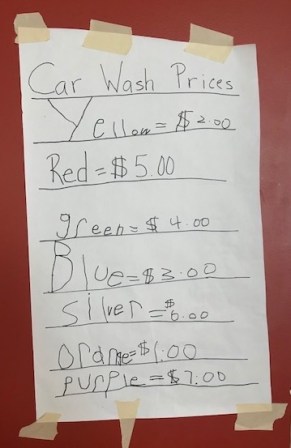 Car Wash Prices
Yellow = $2.00
Red = $5.00
green = $4.00
Blue = $3.00
silver = $6.00
orange = $1.00
purple = $7.00